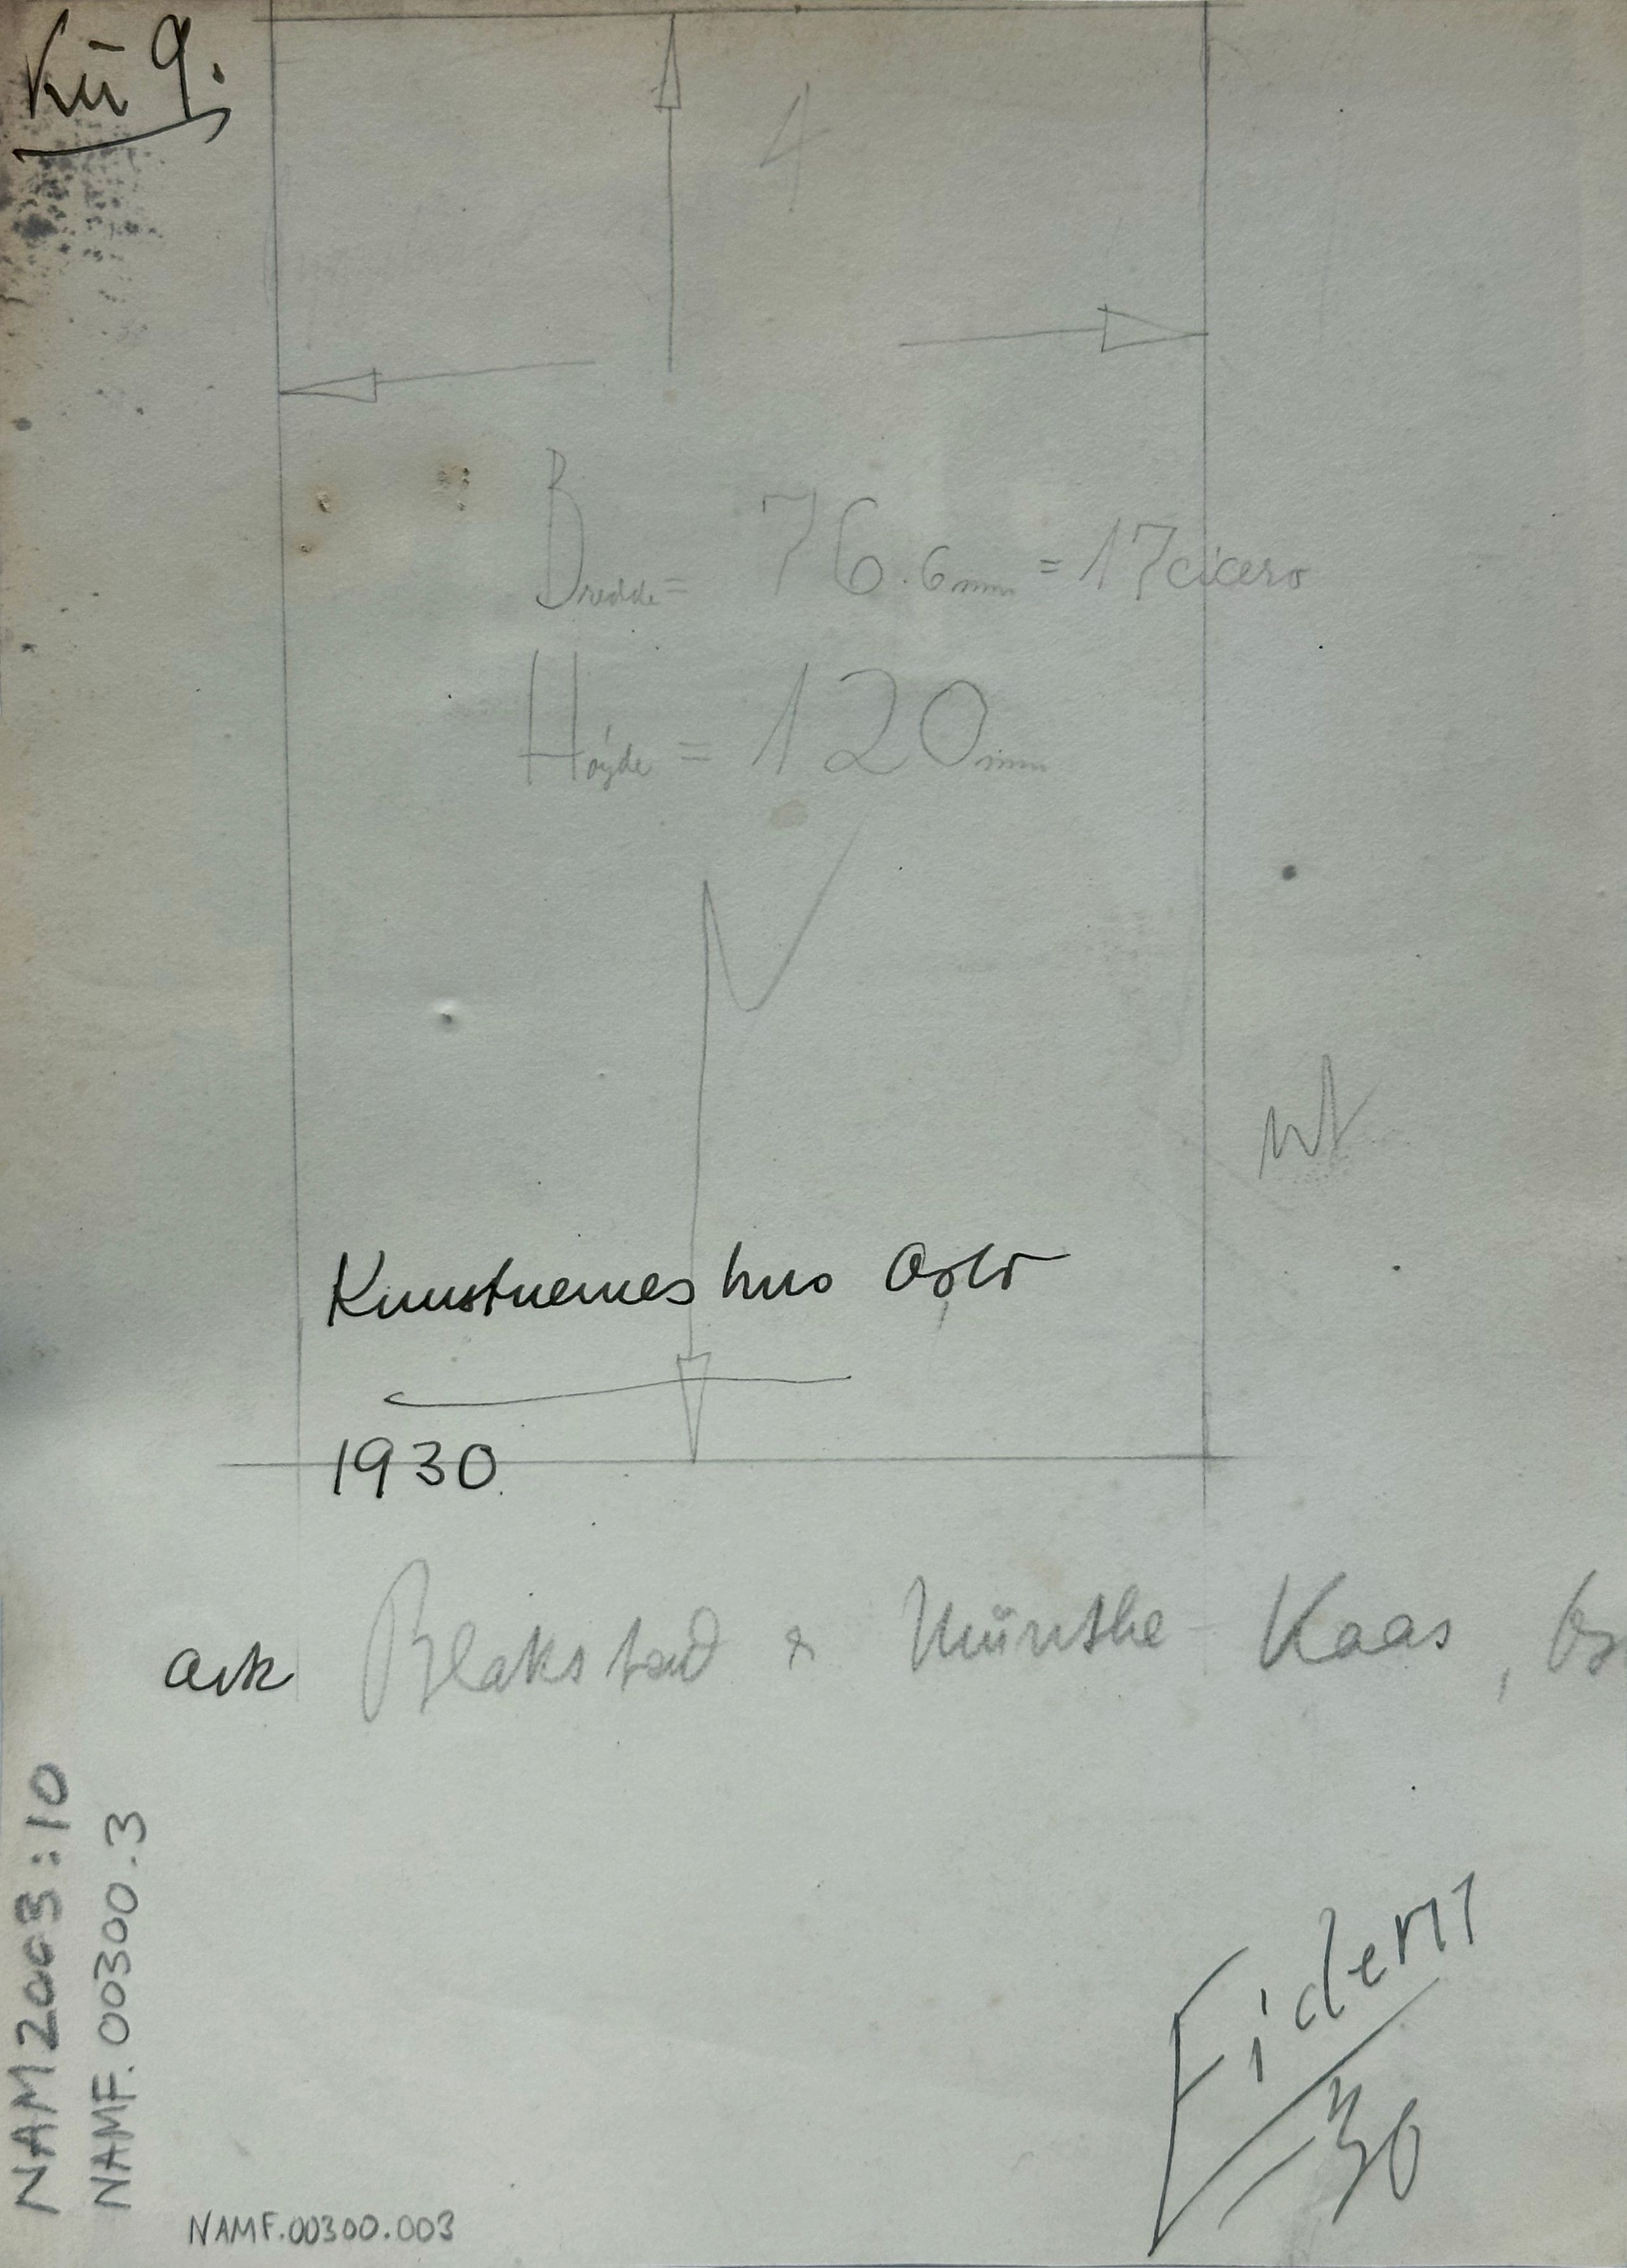 Kü 9.
4
Bredde = 76.6mm = 17cicero
Høyde = 120mm
Kunstnernes hus Oslo
1930.
ark Blakstad & Münthe-Kaas,
NAM2003:10
NAMF.00300.3
Eidem
30
NAMF.00300.003